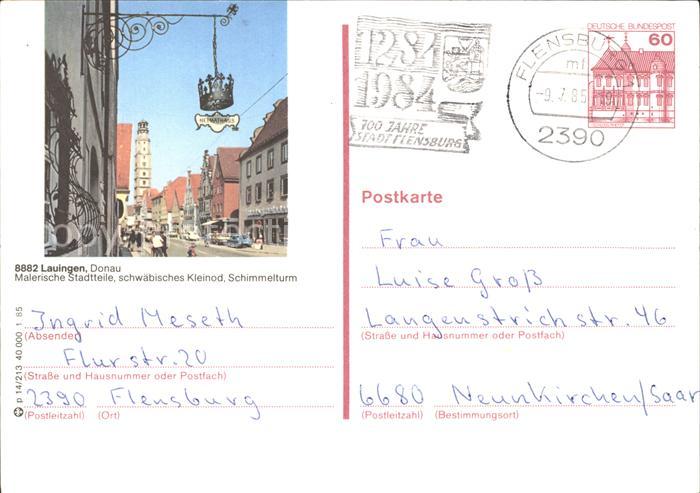 HEIMATHAUS
8882 Lauingen, Donau
Malerische Stadtteile, schwäbisches Kleinod, Schimmelturm
Ingrid Meseth
(Absender)
Flurstr. 20
(Straße und Hausnummer oder Postfach)
2390 Flensburg
(Postleitzahl) (Ort)
p 14/213 40 000 1 85
1284
1984
700 JAHRE
STADT FLENSBURG
FLENSBURG
-9.7.85
2390
DEUTSCHE BUNDESPOST
60
Postkarte
Frau
Luise Groß
Langenstrichstr. 46
(Straße und Hausnummer oder Postfach)
6680 Neunkirchen/Saar
(Postleitzahl) (Bestimmungsort)